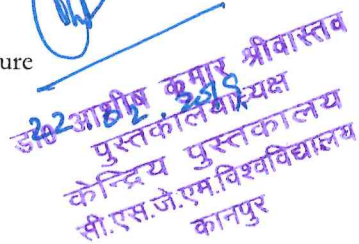 ure
डा० आशीष कुमार श्रीवास्तव
पुस्तकालयाध्यक्ष
केन्द्रिय पुस्तकालय
सी.एस.जे.एम.विश्वविद्यालय
कानपुर